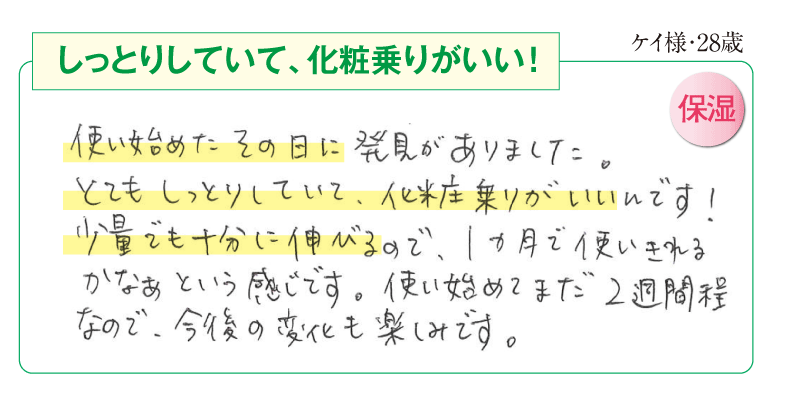 ケイ様・28歳
しっとりしていて、化粧乗りがいい!
保湿
使い始めたその日に発見がありました。
とてもしっとりしていて、化粧乗りがいいんです!
少量でも十分に伸びるので、1か月で使いきれる
かなぁという感じです。使い始めてまだ2週間程
なので、今後の変化も楽しみです。